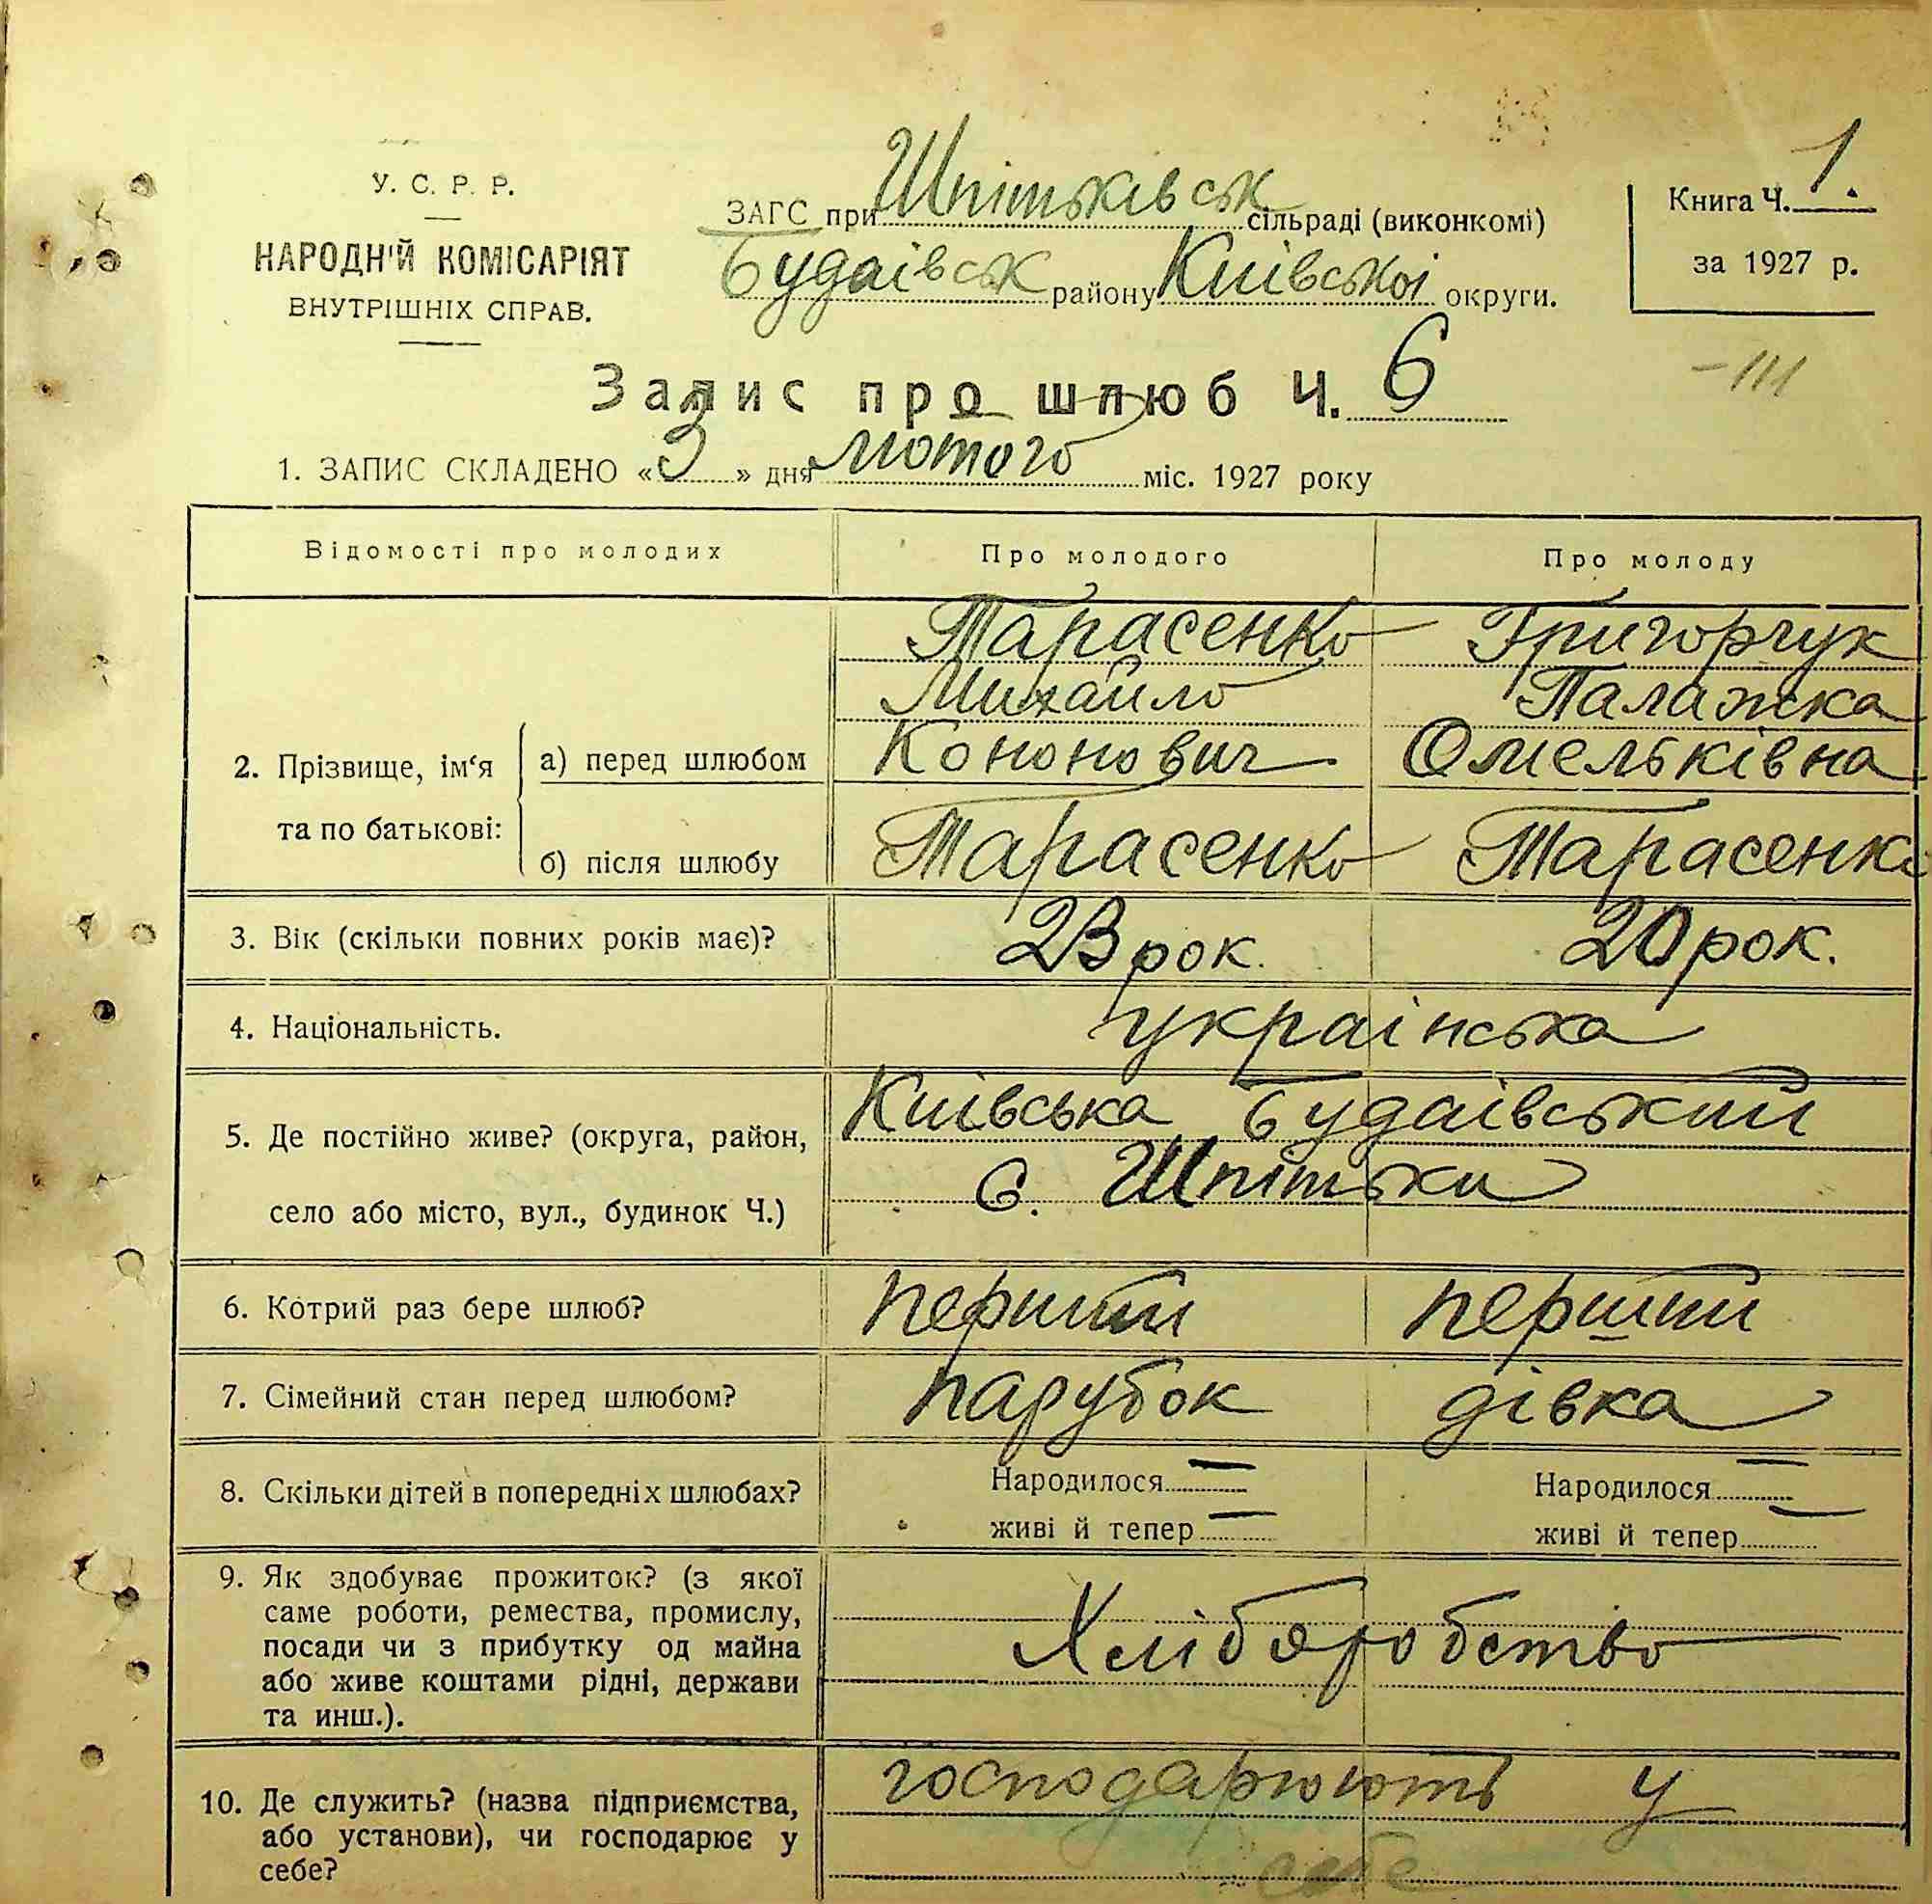 У. С. Р. Р.
НАРОДНІЙ КОМІСАРІЯТ
ВНУТРІШНІХ СПРАВ.
ЗАГС при Шпітьківськ сільраді (виконкомі)
Будаівськ району Киівськоі округи.
Книга Ч. 1.
за 1927 р.
Запис про шлюб Ч. 6
1. ЗАПИС СКЛАДЕНО «3» дня лютого міс. 1927 року
Відомості про молодих Про молодого Про молоду
Тарасенко Григорчук
Михайло Палажка
2. Прізвище, ім‘я а) перед шлюбом Кононович Омельківна
та по батькові:
б) після шлюбу Тарасенко Тарасенко
3. Вік (скільки повних років має)? 23 рок. 20 рок.
4. Національність. украінська
5. Де постійно живе? (округа, район, Киівська Будаівський
село або місто, вул., будинок Ч.) с. Шпітьки
6. Котрий раз бере шлюб? перший перший
7. Сімейний стан перед шлюбом? парубок дівка
8. Скільки дітей в попередніх шлюбах? Народилося — Народилося —
живі й тепер — живі й тепер —
9. Як здобуває прожиток? (з якої
саме роботи, ремества, промислу,
посади чи з прибутку од майна Хліборобство
або живе коштами рідні, держави
та инш.).
10. Де служить? (назва підприємства, господарюють у
або установи), чи господарює у
себе? себе